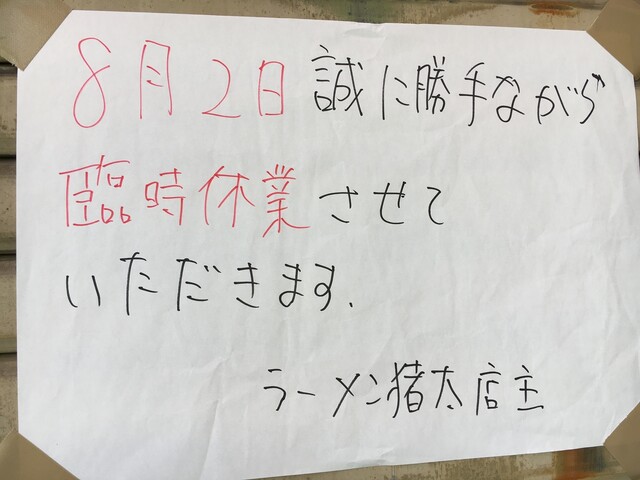 8月2日 誠に勝手ながら
臨時休業させて
いただきます.
ラーメン猪太店主